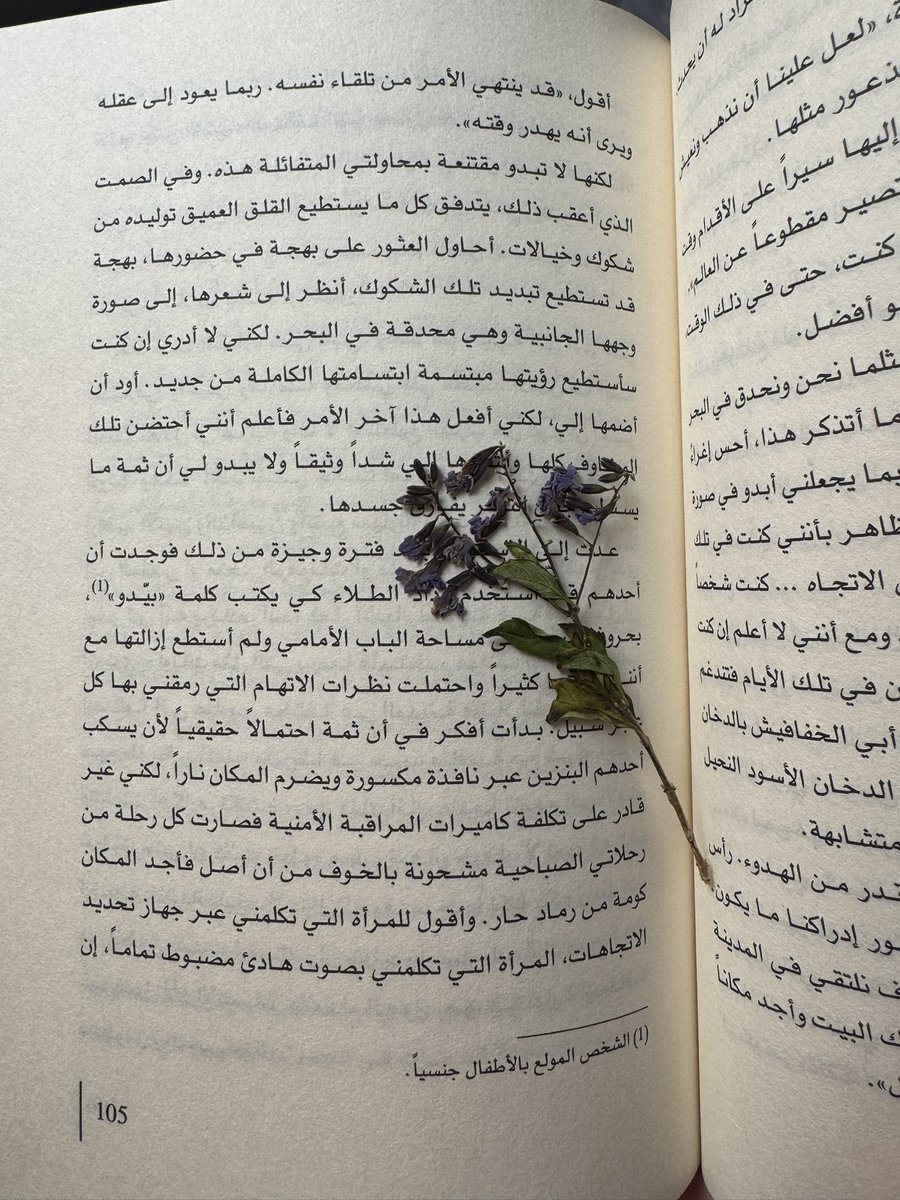 أقول، «قد ينتهي الأمر من تلقاء نفسه. ربما يعود إلى عقله
ويرى أنه يهدر وقته».
لكنها لا تبدو مقتنعة بمحاولتي المتفائلة هذه. وفي الصمت
الذي أعقب ذلك، يتدفق كل ما يستطيع القلق العميق توليده من
شكوك وخيالات. أحاول العثور على بهجة في حضورها، بهجة
قد تستطيع تبديد تلك الشكوك، أنظر إلى شعرها، إلى صورة
وجهها الجانبية وهي محدقة في البحر. لكني لا أدري إن كنت
سأستطيع رؤيتها مبتسمة ابتسامتها الكاملة من جديد. أود أن
أضمها إلي، لكني أفعل هذا آخر الأمر فأعلم أنني أحتضن تلك
كلها إلي شداً وثيقاً ولا يبدو لي أن ثمة ما
يفارق جسدها.
عدت إلى فترة وجيزة من ذلك فوجدت أن
أحدهم الطلاء كي يكتب كلمة «بيّدو»(1)،
مساحة الباب الأمامي ولم أستطع إزالتها مع
كثيراً واحتملت نظرات الاتهام التي رمقني بها كل
سبيل. بدأت أفكر في أن ثمة احتمالاً حقيقياً لأن يسكب
أحدهم البنزين عبر نافذة مكسورة ويضرم المكان ناراً، لكني غير
قادر على تكلفة كاميرات المراقبة الأمنية فصارت كل رحلة من
رحلاتي الصباحية مشحونة بالخوف من أن أصل فأجد المكان
كومة من رماد حار. وأقول للمرأة التي تكلمني عبر جهاز تحديد
الاتجاهات، المرأة التي تكلمني بصوت هادئ مضبوط تماماً، إن
(1) الشخص المولع بالأطفال جنسياً.
105
«لعل علينا أن نذهب ونعيش
مثلها.
إليها سيراً على الأقدام وقت
تصير مقطوعاً عن العالم».
كنت، حتى في ذلك الوقت
أفضل.
نحن ونحدق في البحر
أتذكر هذا، أحس إغراءً
يجعلني أبدو في صورة
بأنني كنت في تلك
الاتجاه ... كنت شخصاً
ومع أنني لا أعلم إن كنت
في تلك الأيام فتندغم
أبي الخفافيش بالدخان
الدخان الأسود النحيل
متشابهة.
من الهدوء. رأس
إدراكنا ما يكون
نلتقي في المدينة
البيت وأجد مكاناً